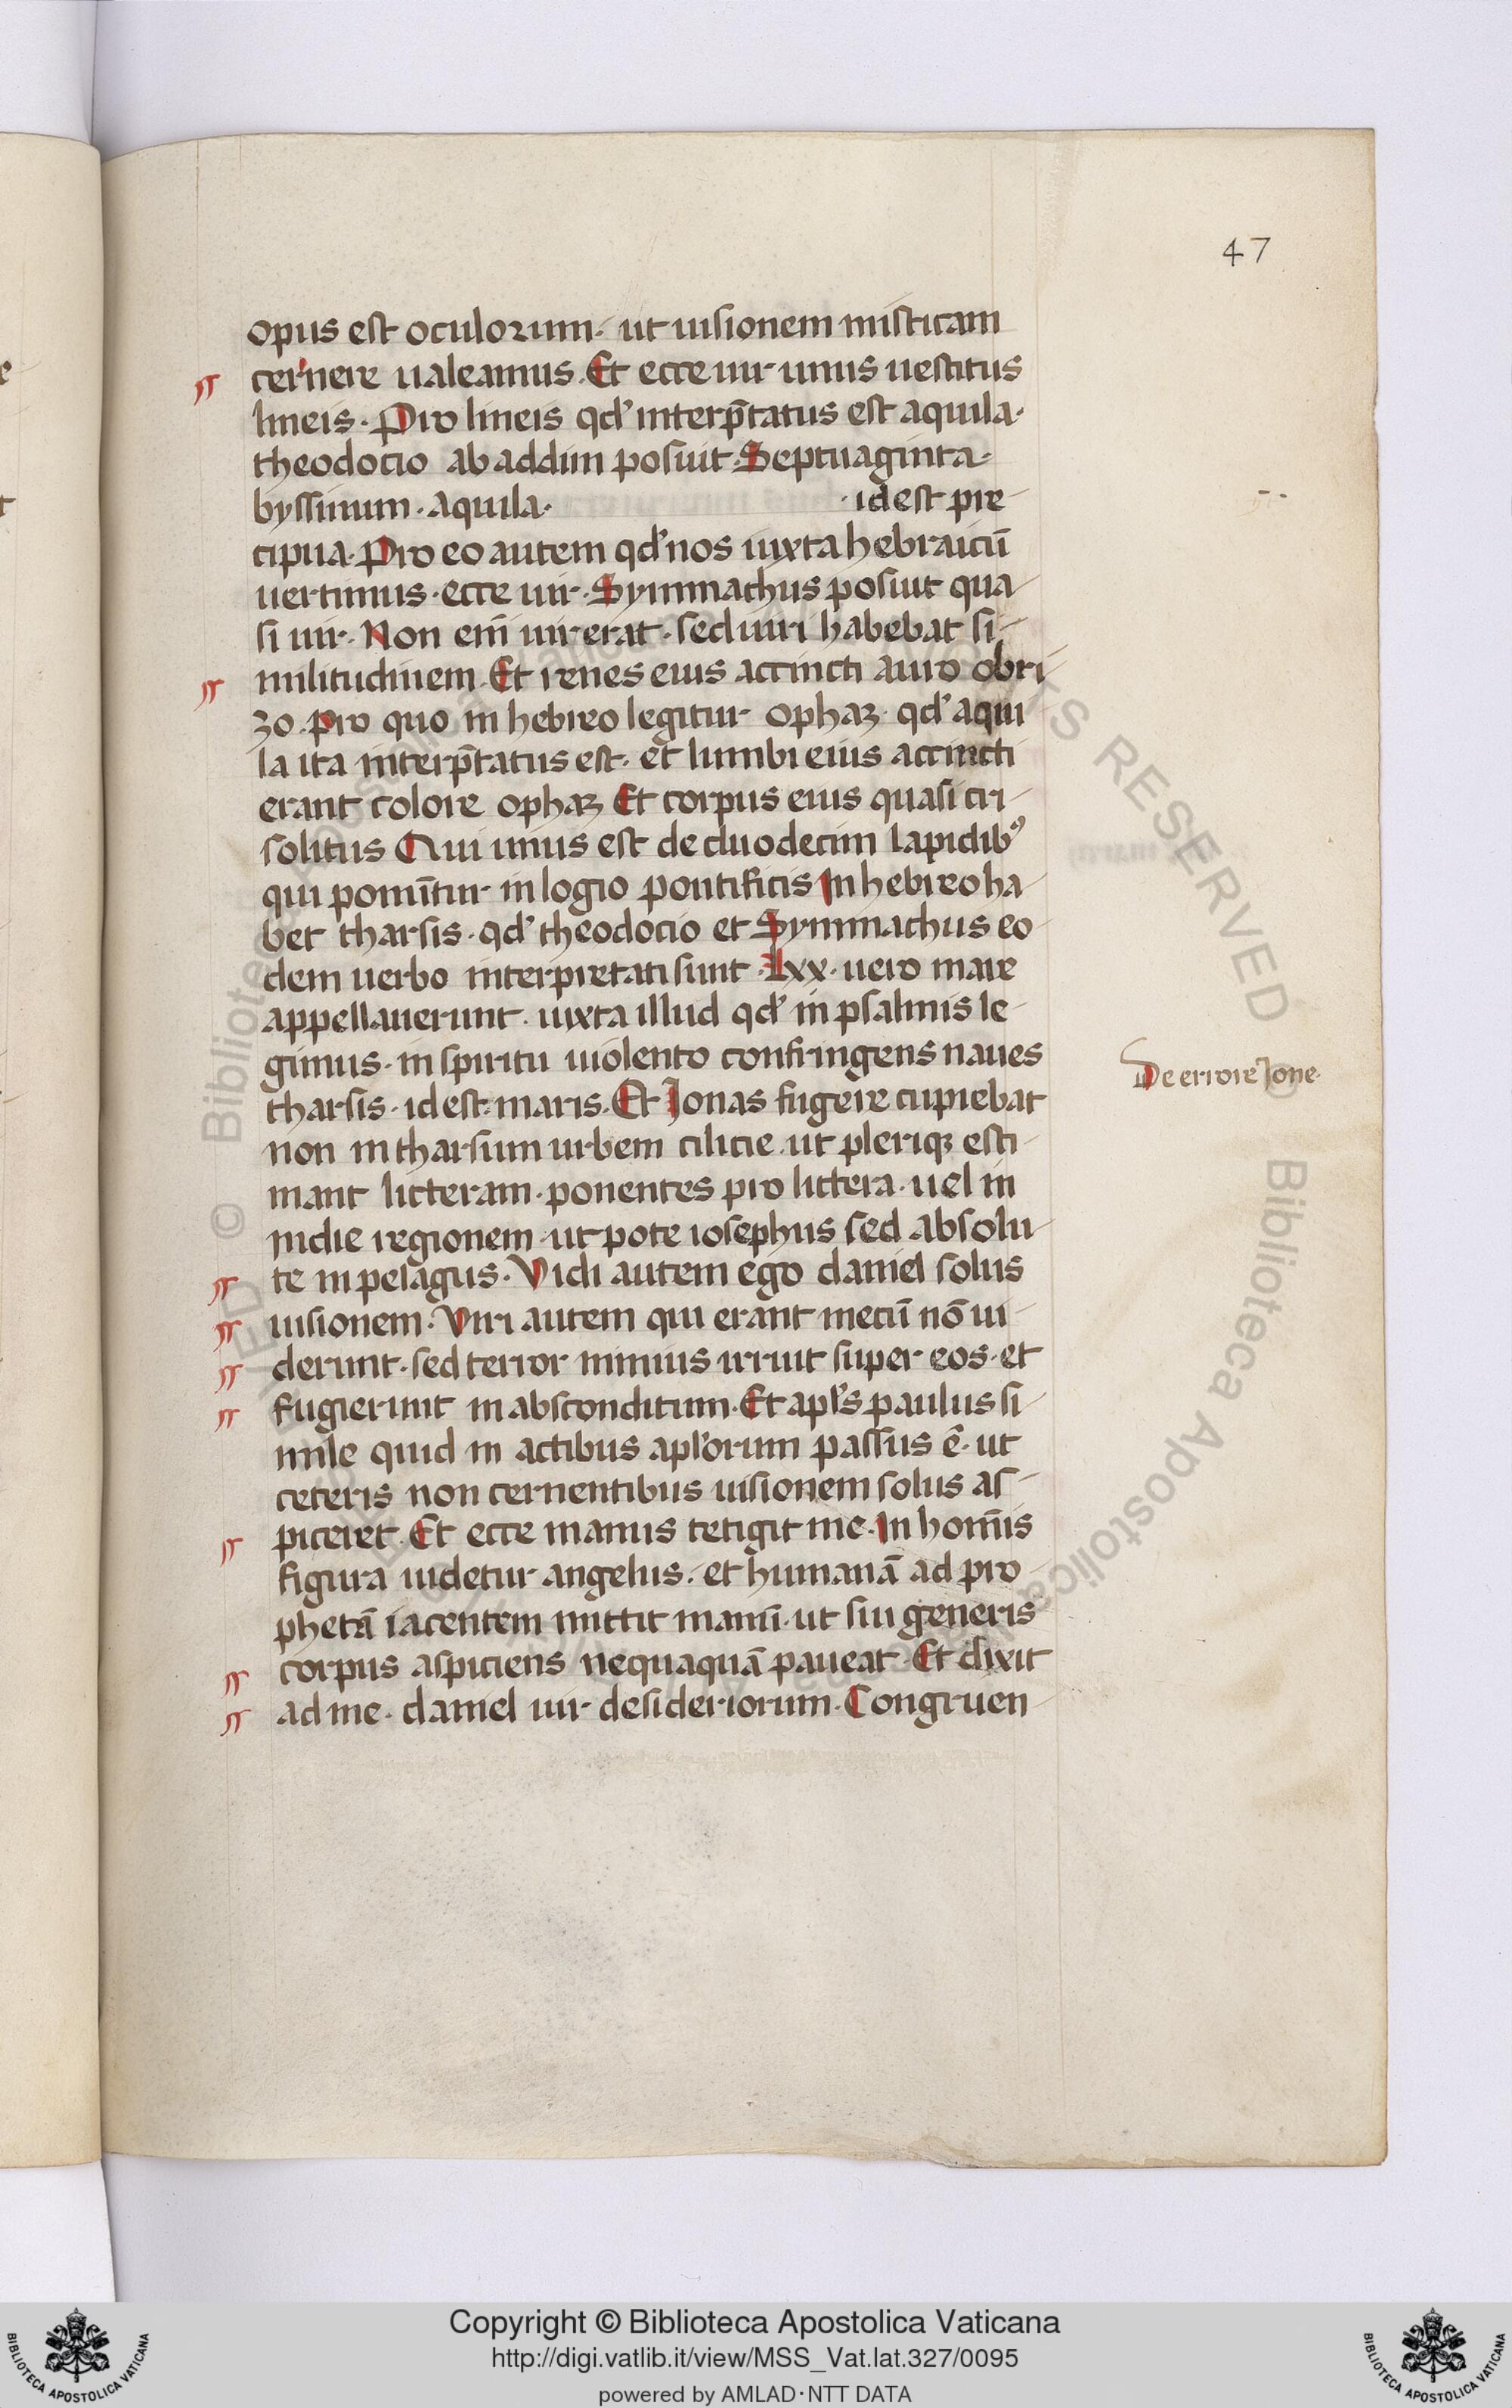 47
opus est oculorum · ut uisionem misticam
cernere ualeamus . Et ecce uir unus uestitus
lineis · Pro lineis qd' interp̄tatus est aquila·
theodocio abaddim posuit · Septuaginta·
byssinum · aquila· · idest pre-
cipua · Pro eo autem qd' nos iuxta hebraicū
uertimus · ecce uir · Symmachus posuit qua-
si uir · Non eni̅ uir erat · sed uiri habebat si-
militudinem . Et renes eius accincti auro obri-
zo . pro quo in hebreo legitur ophaz · qd' aqui
la ita interp̄tatus est · et lumbi eius accincti
erant colore ophaz Et corpus eius quasi cri-
solitus Qui unus est de duodecim lapidibꝰ
qui ponūtur in logio pontificis In hebreo ha-
bet tharsis · qd' theodocio et Symmachus eo-
dem uerbo interpretati sunt · Lxx · uero mare
appellauerunt · iuxta illud qd' in psalmis le-
gimus · in spiritu uiolento confringens naues
De errore Jone·
tharsis · idest maris . Et Jonas fugere cupiebat
non in tharsum urbem cilicie · ut pleriqꝫ esti-
mant litteram · ponentes pro littera · uel in
indie regionem · ut pote iosephus sed absolu-
te in pelagus · Vidi autem ego daniel solus
uisionem · Viri autem qui erant mecū nō ui-
derunt · sed terror nimius irruit super eos · et
fugierunt in absconditum · Et apl's paulus si-
mile quid in actibus apl'orum passus ē · ut
ceteris non cernentibus uisionem solus as-
piceret · Et ecce manus tetigit me · In homīs
figura uidetur angelus · et humanā ad pro-
phetā iacentem mittit manū · ut sui generis
corpus aspiciens nequaquā paueat · Et dixit
ad me · daniel uir desideriorum · Congruen-
Copyright © Biblioteca Apostolica Vaticana
http://digi.vatlib.it/view/MSS_Vat.lat.327/0095
powered by AMLAD·NTT DATA
BIBLIOTECA APOSTOLICA VATICANA
BIBLIOTECA APOSTOLICA VATICANA